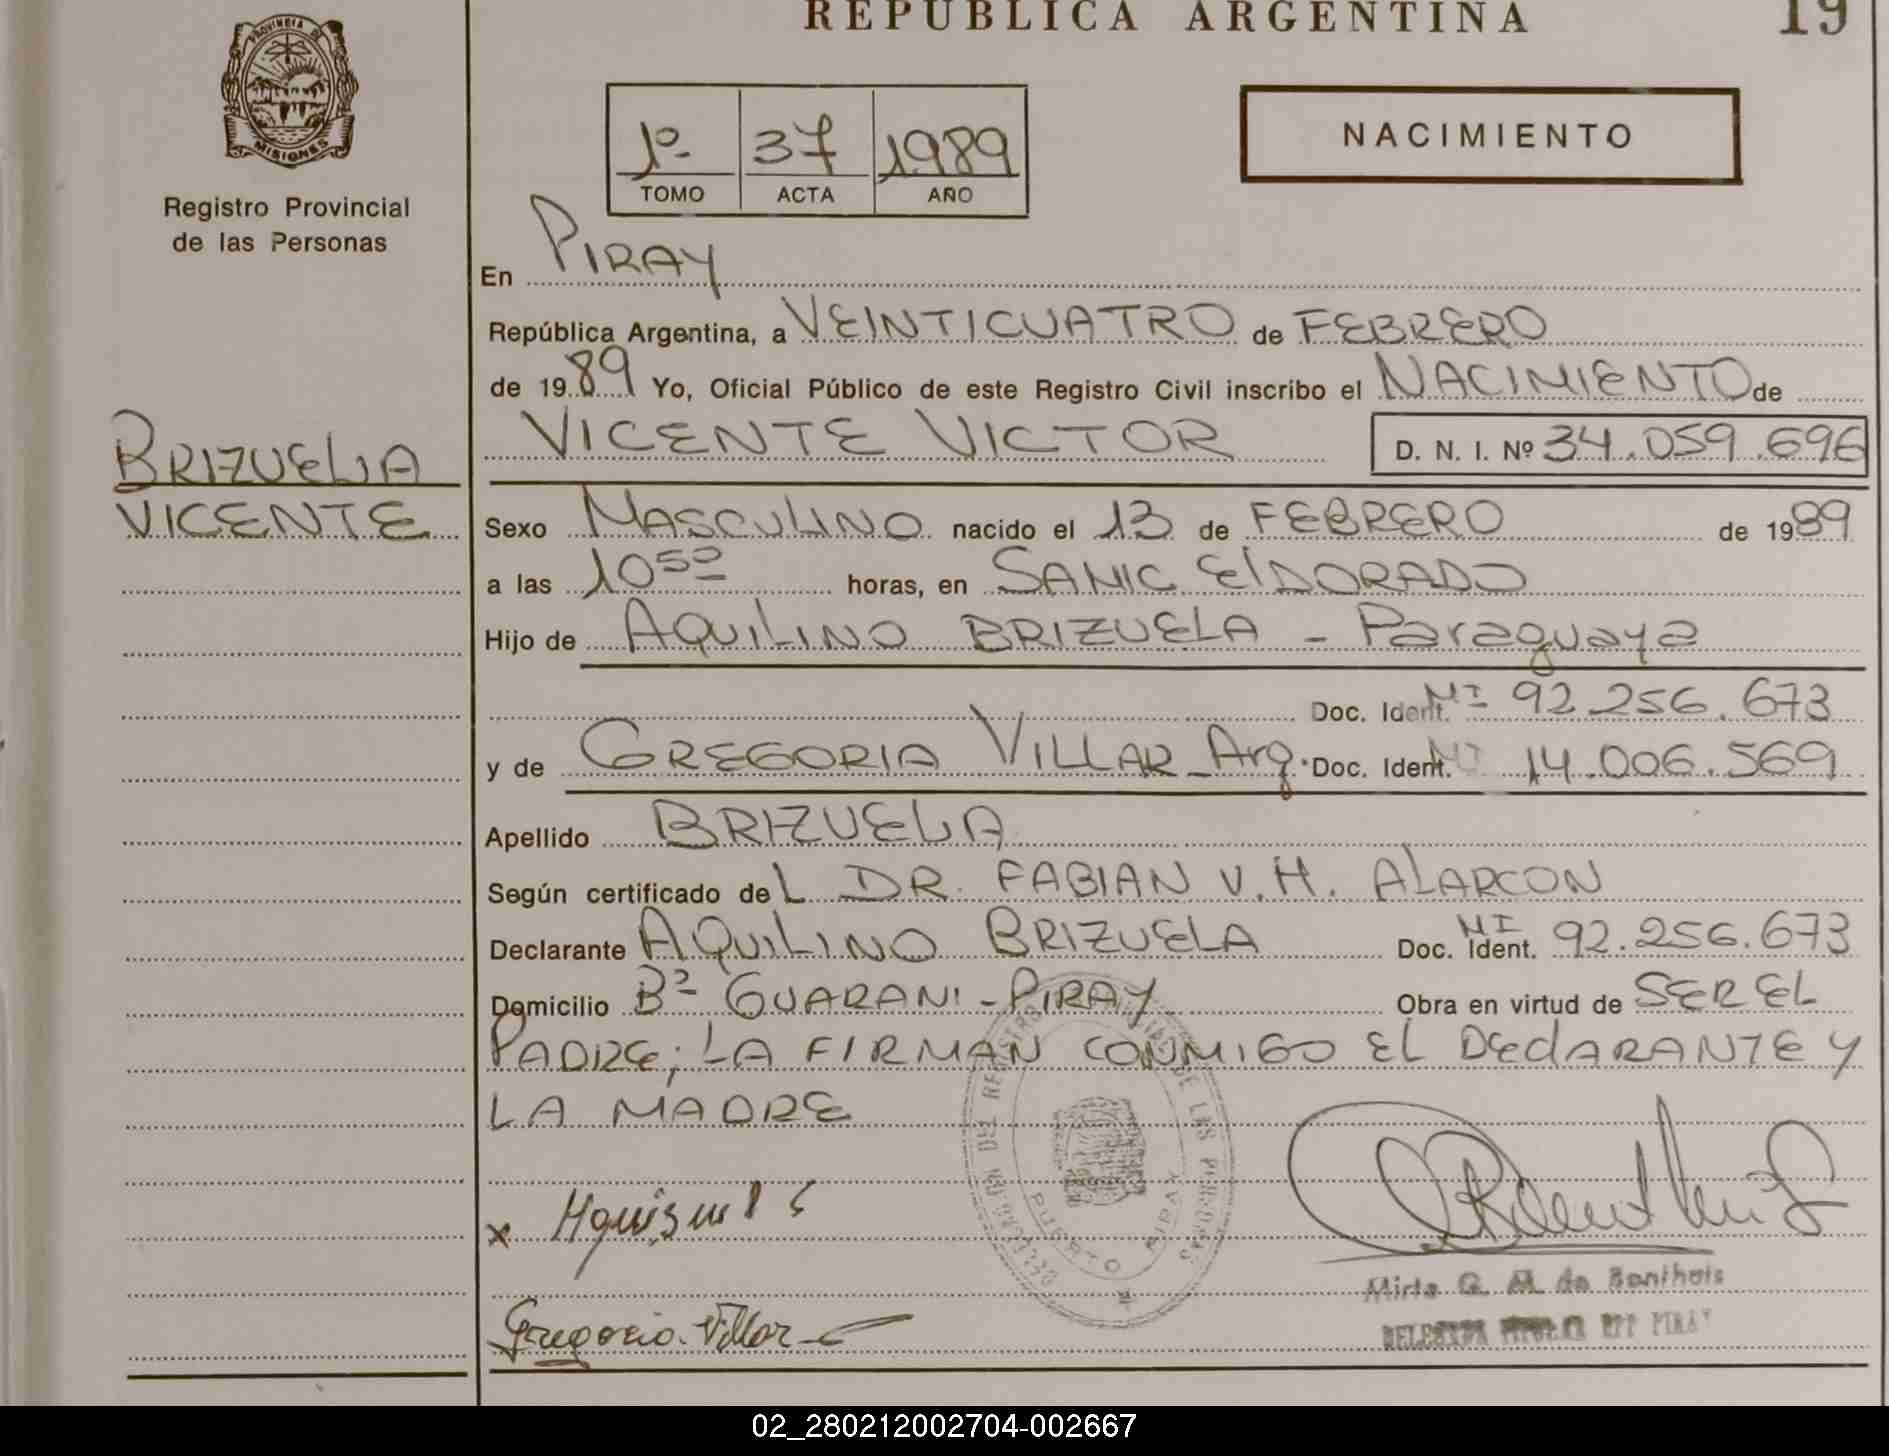 REPUBLICA ARGENTINA
19
PROVINCIA DE
MISIONES
Registro Provincial
de las Personas
1º 37 1989
TOMO ACTA AÑO
NACIMIENTO
En PIRAY
República Argentina, a VEINTICUATRO de FEBRERO
de 1989 Yo, Oficial Público de este Registro Civil inscribo el NACIMIENTO de
VICENTE VICTOR D. N. I. Nº 34.059.696
BRIZUELA
VICENTE
Sexo MASCULINO nacido el 13 de FEBRERO de 1989
a las 10 50 horas, en SAMIC ElDORADO
Hijo de AQUILINO BRIZUELA - Paraguaya
Doc. Ident. MI 92.256.673
y de GREGORIA VILLAR - Arg. Doc. Ident. MI 14.006.569
Apellido BRIZUELA
Según certificado del DR. FABIAN V. H. ALARCON
Declarante AQUILINO BRIZUELA Doc. Ident. MI 92.256.673
Domicilio Bº GUARANI - PIRAY Obra en virtud de SER EL
PADRE; LA FIRMAN CONMIGO EL DEClARANTE Y
LA MADRE
DEL REGISTRO DE LAS PERSONAS
PUERTO PIRAY
x
Gregoria Villar
Mirta G. M. de
PIRAY
02_280212002704-002667